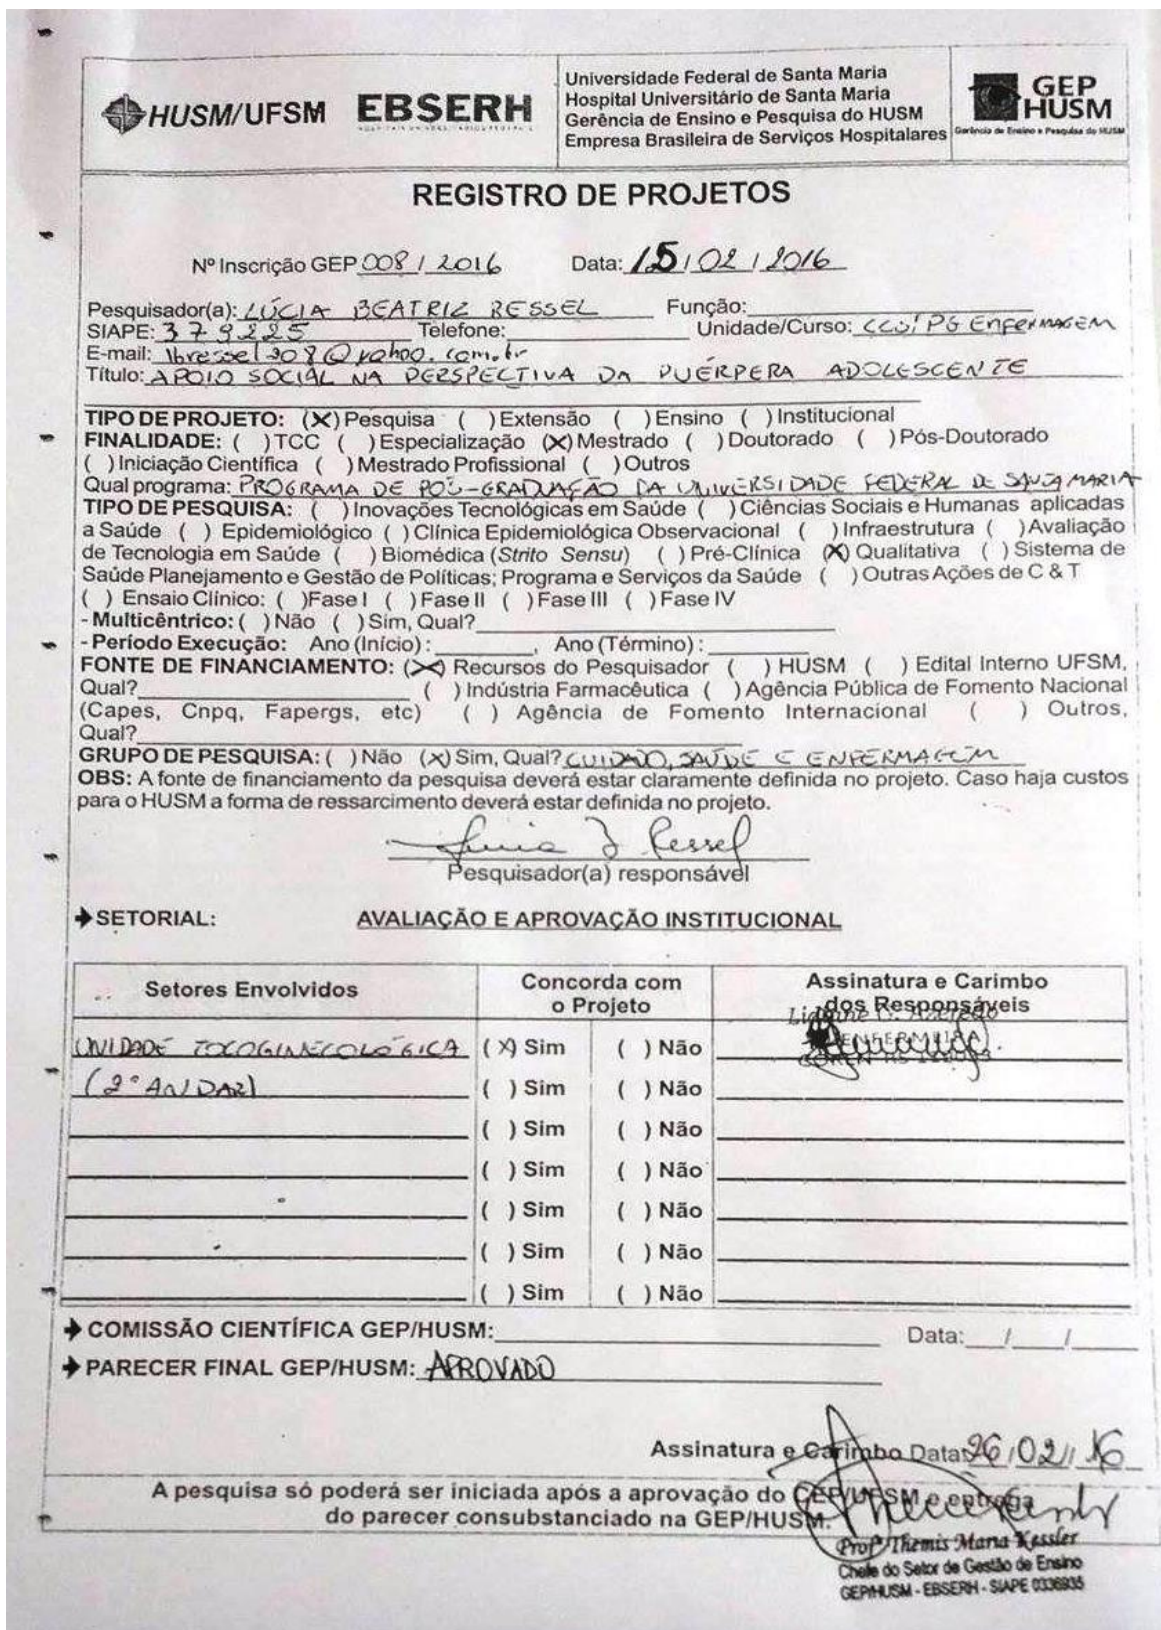 HUSM/UFSM EBSERH
HOSPITAIS UNIVERSITÁRIOS FEDERAIS
Universidade Federal de Santa Maria
Hospital Universitário de Santa Maria
Gerência de Ensino e Pesquisa do HUSM
Empresa Brasileira de Serviços Hospitalares
GEP
HUSM
Gerência de Ensino e Pesquisa do HUSM
REGISTRO DE PROJETOS
Nº Inscrição GEP 008 / 2016 Data: 15 / 02 / 2016
Pesquisador(a): LÚCIA BEATRIZ RESSEL Função:
SIAPE: 379225 Telefone: Unidade/Curso: CCS/ PG ENFERMAGEM
E-mail: lbressel208@yahoo.com.br
Título: APOIO SOCIAL NA PERSPECTIVA DA PUÉRPERA ADOLESCENTE
TIPO DE PROJETO: (X) Pesquisa ( ) Extensão ( ) Ensino ( ) Institucional
FINALIDADE: ( ) TCC ( ) Especialização (X) Mestrado ( ) Doutorado ( ) Pós-Doutorado
( ) Iniciação Científica ( ) Mestrado Profissional ( ) Outros
Qual programa: PROGRAMA DE PÓS-GRADUAÇÃO DA UNIVERSIDADE FEDERAL DE SANTA MARIA
TIPO DE PESQUISA: ( ) Inovações Tecnológicas em Saúde ( ) Ciências Sociais e Humanas aplicadas
a Saúde ( ) Epidemiológico ( ) Clínica Epidemiológica Observacional ( ) Infraestrutura ( ) Avaliação
de Tecnologia em Saúde ( ) Biomédica (Strito Sensu) ( ) Pré-Clínica (X) Qualitativa ( ) Sistema de
Saúde Planejamento e Gestão de Políticas; Programa e Serviços da Saúde ( ) Outras Ações de C & T
( ) Ensaio Clínico: ( ) Fase I ( ) Fase II ( ) Fase III ( ) Fase IV
- Multicêntrico: ( ) Não ( ) Sim, Qual?
- Período Execução: Ano (Início) : , Ano (Término) :
FONTE DE FINANCIAMENTO: (X) Recursos do Pesquisador ( ) HUSM ( ) Edital Interno UFSM,
Qual? ( ) Indústria Farmacêutica ( ) Agência Pública de Fomento Nacional
(Capes, Cnpq, Fapergs, etc) ( ) Agência de Fomento Internacional ( ) Outros,
Qual?
GRUPO DE PESQUISA: ( ) Não (X) Sim, Qual? CUIDADO, SAÚDE E ENFERMAGEM
OBS: A fonte de financiamento da pesquisa deverá estar claramente definida no projeto. Caso haja custos
para o HUSM a forma de ressarcimento deverá estar definida no projeto.
Lúcia B Ressel
Pesquisador(a) responsável
SETORIAL: AVALIAÇÃO E APROVAÇÃO INSTITUCIONAL
Setores Envolvidos Concorda com o Projeto Assinatura e Carimbo dos Responsáveis
ENFERMEIRA
UNIDADE TOCOGINECOLÓGICA (X) Sim ( ) Não
(2º ANDAR) ( ) Sim ( ) Não
( ) Sim ( ) Não
( ) Sim ( ) Não
( ) Sim ( ) Não
( ) Sim ( ) Não
( ) Sim ( ) Não
COMISSÃO CIENTÍFICA GEP/HUSM: Data: / /
PARECER FINAL GEP/HUSM: APROVADO
Assinatura e Carimbo Data: 26 / 02 / 16
A pesquisa só poderá ser iniciada após a aprovação do CEP/UFSM e entrega
do parecer consubstanciado na GEP/HUSM.
Profª Themis Maria Kessler
Chefe do Setor de Gestão de Ensino
GEP/HUSM - EBSERH - SIAPE 0336935